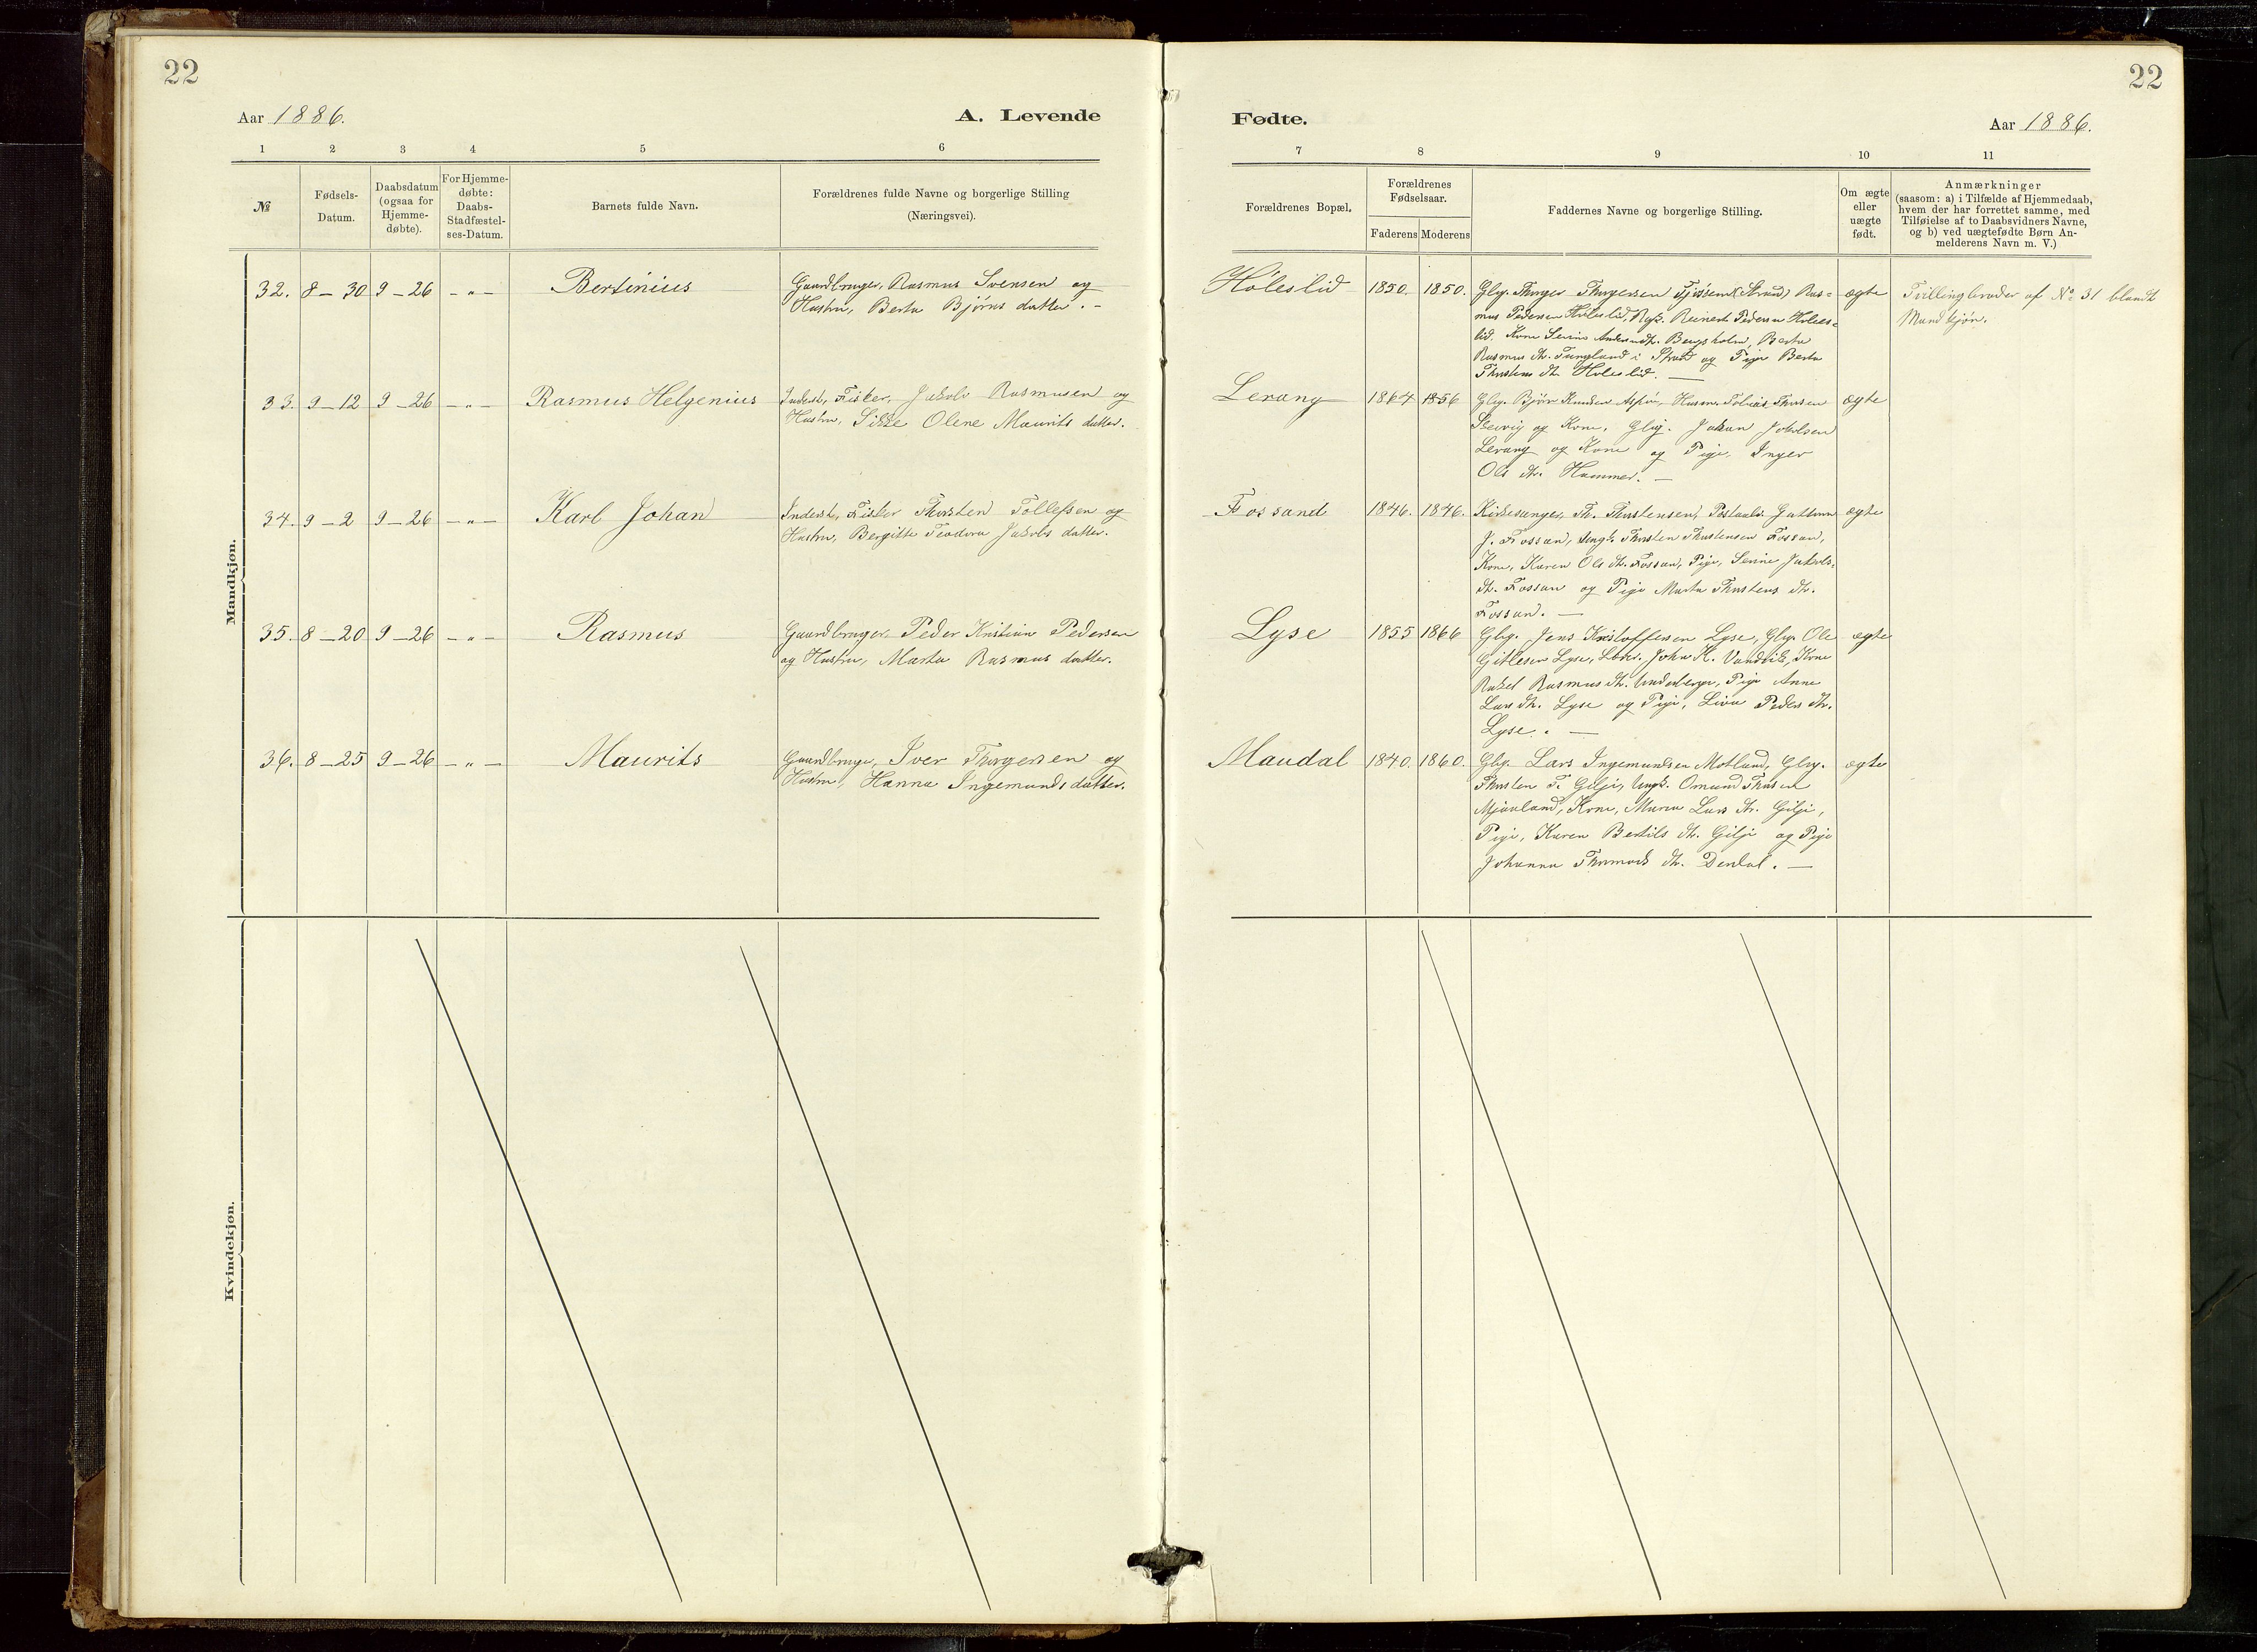 22
22
Aar 1886.
A. Levende
Fødte.
Aar 1886.
1 2 3 4 5 6
7 8 9 10 11
№
Fødsels-
Datum.
Daabsdatum
(ogsaa for
Hjemme-
døbte).
For Hjemme-
døbte:
Daabs-
Stadfæstel-
ses-Datum.
Barnets fulde Navn.
Forældrenes fulde Navne og borgerlige Stilling
(Næringsvei).
Forældrenes Bopæl.
Forældrenes
Fødselsaar.
Faderens Moderens
Faddernes Navne og borgerlige Stilling.
Om ægte
eller
uægte
født.
Anmærkninger
(saasom: a) i Tilfælde af Hjemmedaab,
hvem der har forrettet samme, med
Tilføielse af to Daabsvidners Navne,
og b) ved uægtefødte Børn An-
melderens Navn m. V.)
Mandkjøn.
32. 8-30 9-26 -„- Bertinius
Gaardbruger, Rasmus Svensen og
Hustru, Berta Bjørns datter. -
Høleslid 1850. 1850.
Gbg. Thorger Thorgersen (Strand) Ras-
mus Pedersen Høleslid, Reinert Pedersen Høles-
lid, Kone Serine Bergsholm, Berta
Rasmus dt. Tungland i Strand og Pige Berta
Thorstens dt. Høleslid. -
ægte
Tvillingbroder af No 31 blandt
Mandkjøn.
33. 9-12 9-26 -„- Rasmus Helgenius
Inderst, Fisker, Jakob Rasmusen og
Hustru, Sikke Olene Maurits datter.
Lerang 1864 1856
Gbg. Bjørn Knudsen Husm. Tobias
og Kone, Gbg. Johan Jakobsen
Lerang og Kone og Pige, Inger
Ols dt. Hammer. -
ægte
34. 9-2 9-26 -„- Karl Johan
Inderst, Fisker Thorsten Tollefsen og
Hustru, Bergitte Teodora Jakobs datter.
Fossand 1846. 1846.
Kirkesanger, Th. Thorstensen, Guttorm
J. Fossan, Ungk. Thorsten Thorstensen Fossan,
Kone, Karen Ols dt. Fossan, Pige, Serine Jakobs-
dt. Fossan og Pige Marta Thorstens dt.
Fossan. -
ægte
35. 8-20 9-26 -„- Rasmus
Gaardbruger, Peder Kristian Pedersen
og Hustru, Marta Rasmus datter.
Lyse 1855 1866
Gbg. Jens Kristoffersen Lyse, Gbg. Ole
Gitlesen Lyse, John K. Vandvik, Kone
Rakel Rasmus dt. Underberge, Pige Anne
Lars dt. Lyse og Pige, Liva Peders dt.
Lyse. -
ægte
36. 8-25 9-26 -„- Maurits
Gaardbruger, Iver Thorgersen og
Hustru, Hanna Ingemunds datter.
Maudal 1840. 1860.
Gbg. Lars Ingemundsen Motland, Gbg.
Thorsten T. Gilje, Ungk. Omund
Mjaaland, Kone, Maren Lars dt. Gilje,
Pige, Karen Bertils dt. Gilje og Pige
Johanna Thormods dt. -
ægte
Kvindekjøn.